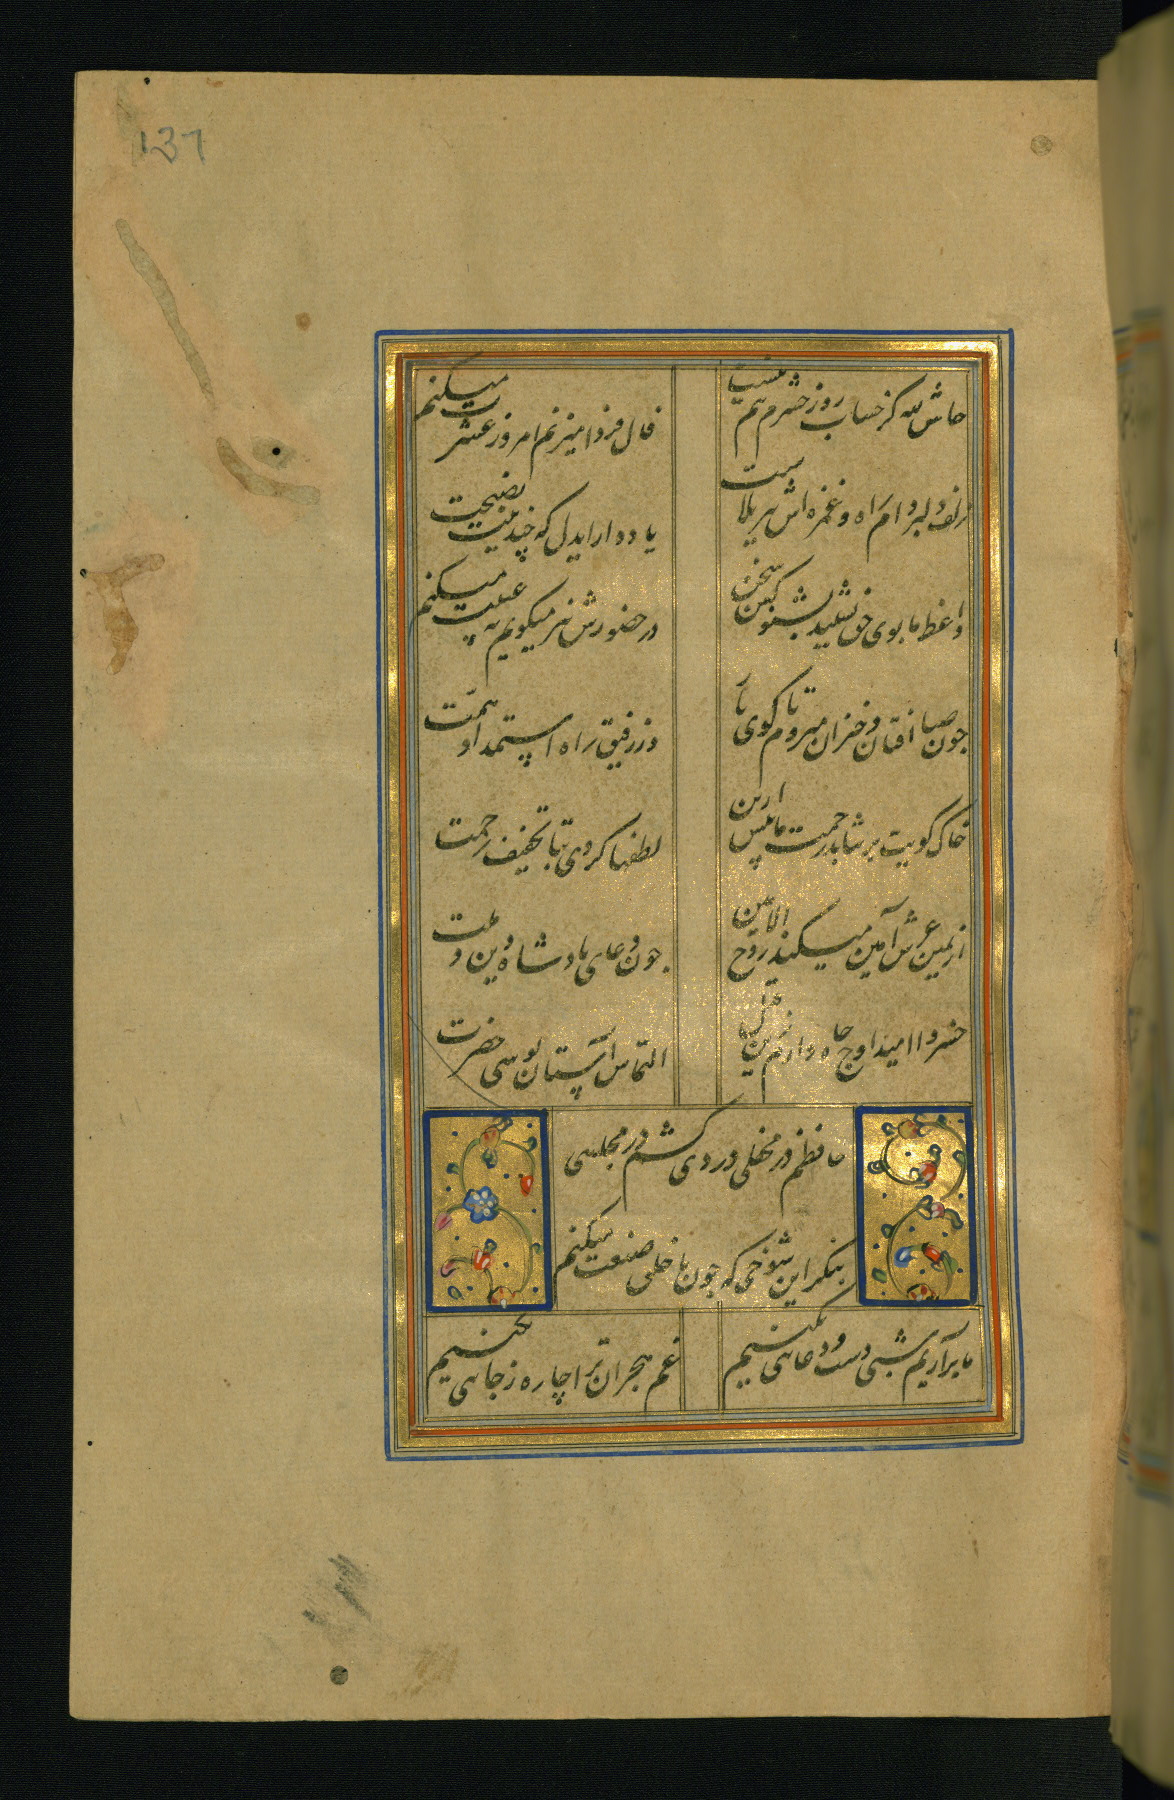 137
حاش لله کز حساب روز حشرم بیم نیست
فال فردا میزنم امروز عشرت میکنم
زلف دلبر دام راه و غمزه اش تیر بلاست
یاد دار ایدل که چندینت نصیحت
واعظ ما بوی حق نشنید بشنو کین سخن
در حضورش نیز میگویم نه غیبت میکنم
چون صبا افتان و خیزان میروم تا کوی
وز رفیق راه استمداد همت
خاک کویت بر نتابد زحمت ما بیش ازین
لطفها کردی بتا تخفیف زحمت
از یمین عرش آمین میکند روح الامین
چون دعای پادشاه دین و ملت
خسروا امید اوج جاه دارم زین
التماس آستان بوسی حضرت
حافظم در محفلی دردی کشم در مجلسی
بنگر این شوخی که چون با خلق صنعت میکنم
ما برآریم شبی دست و دعایی بکنیم
غم هجران ترا چاره ز جایی بکنیم